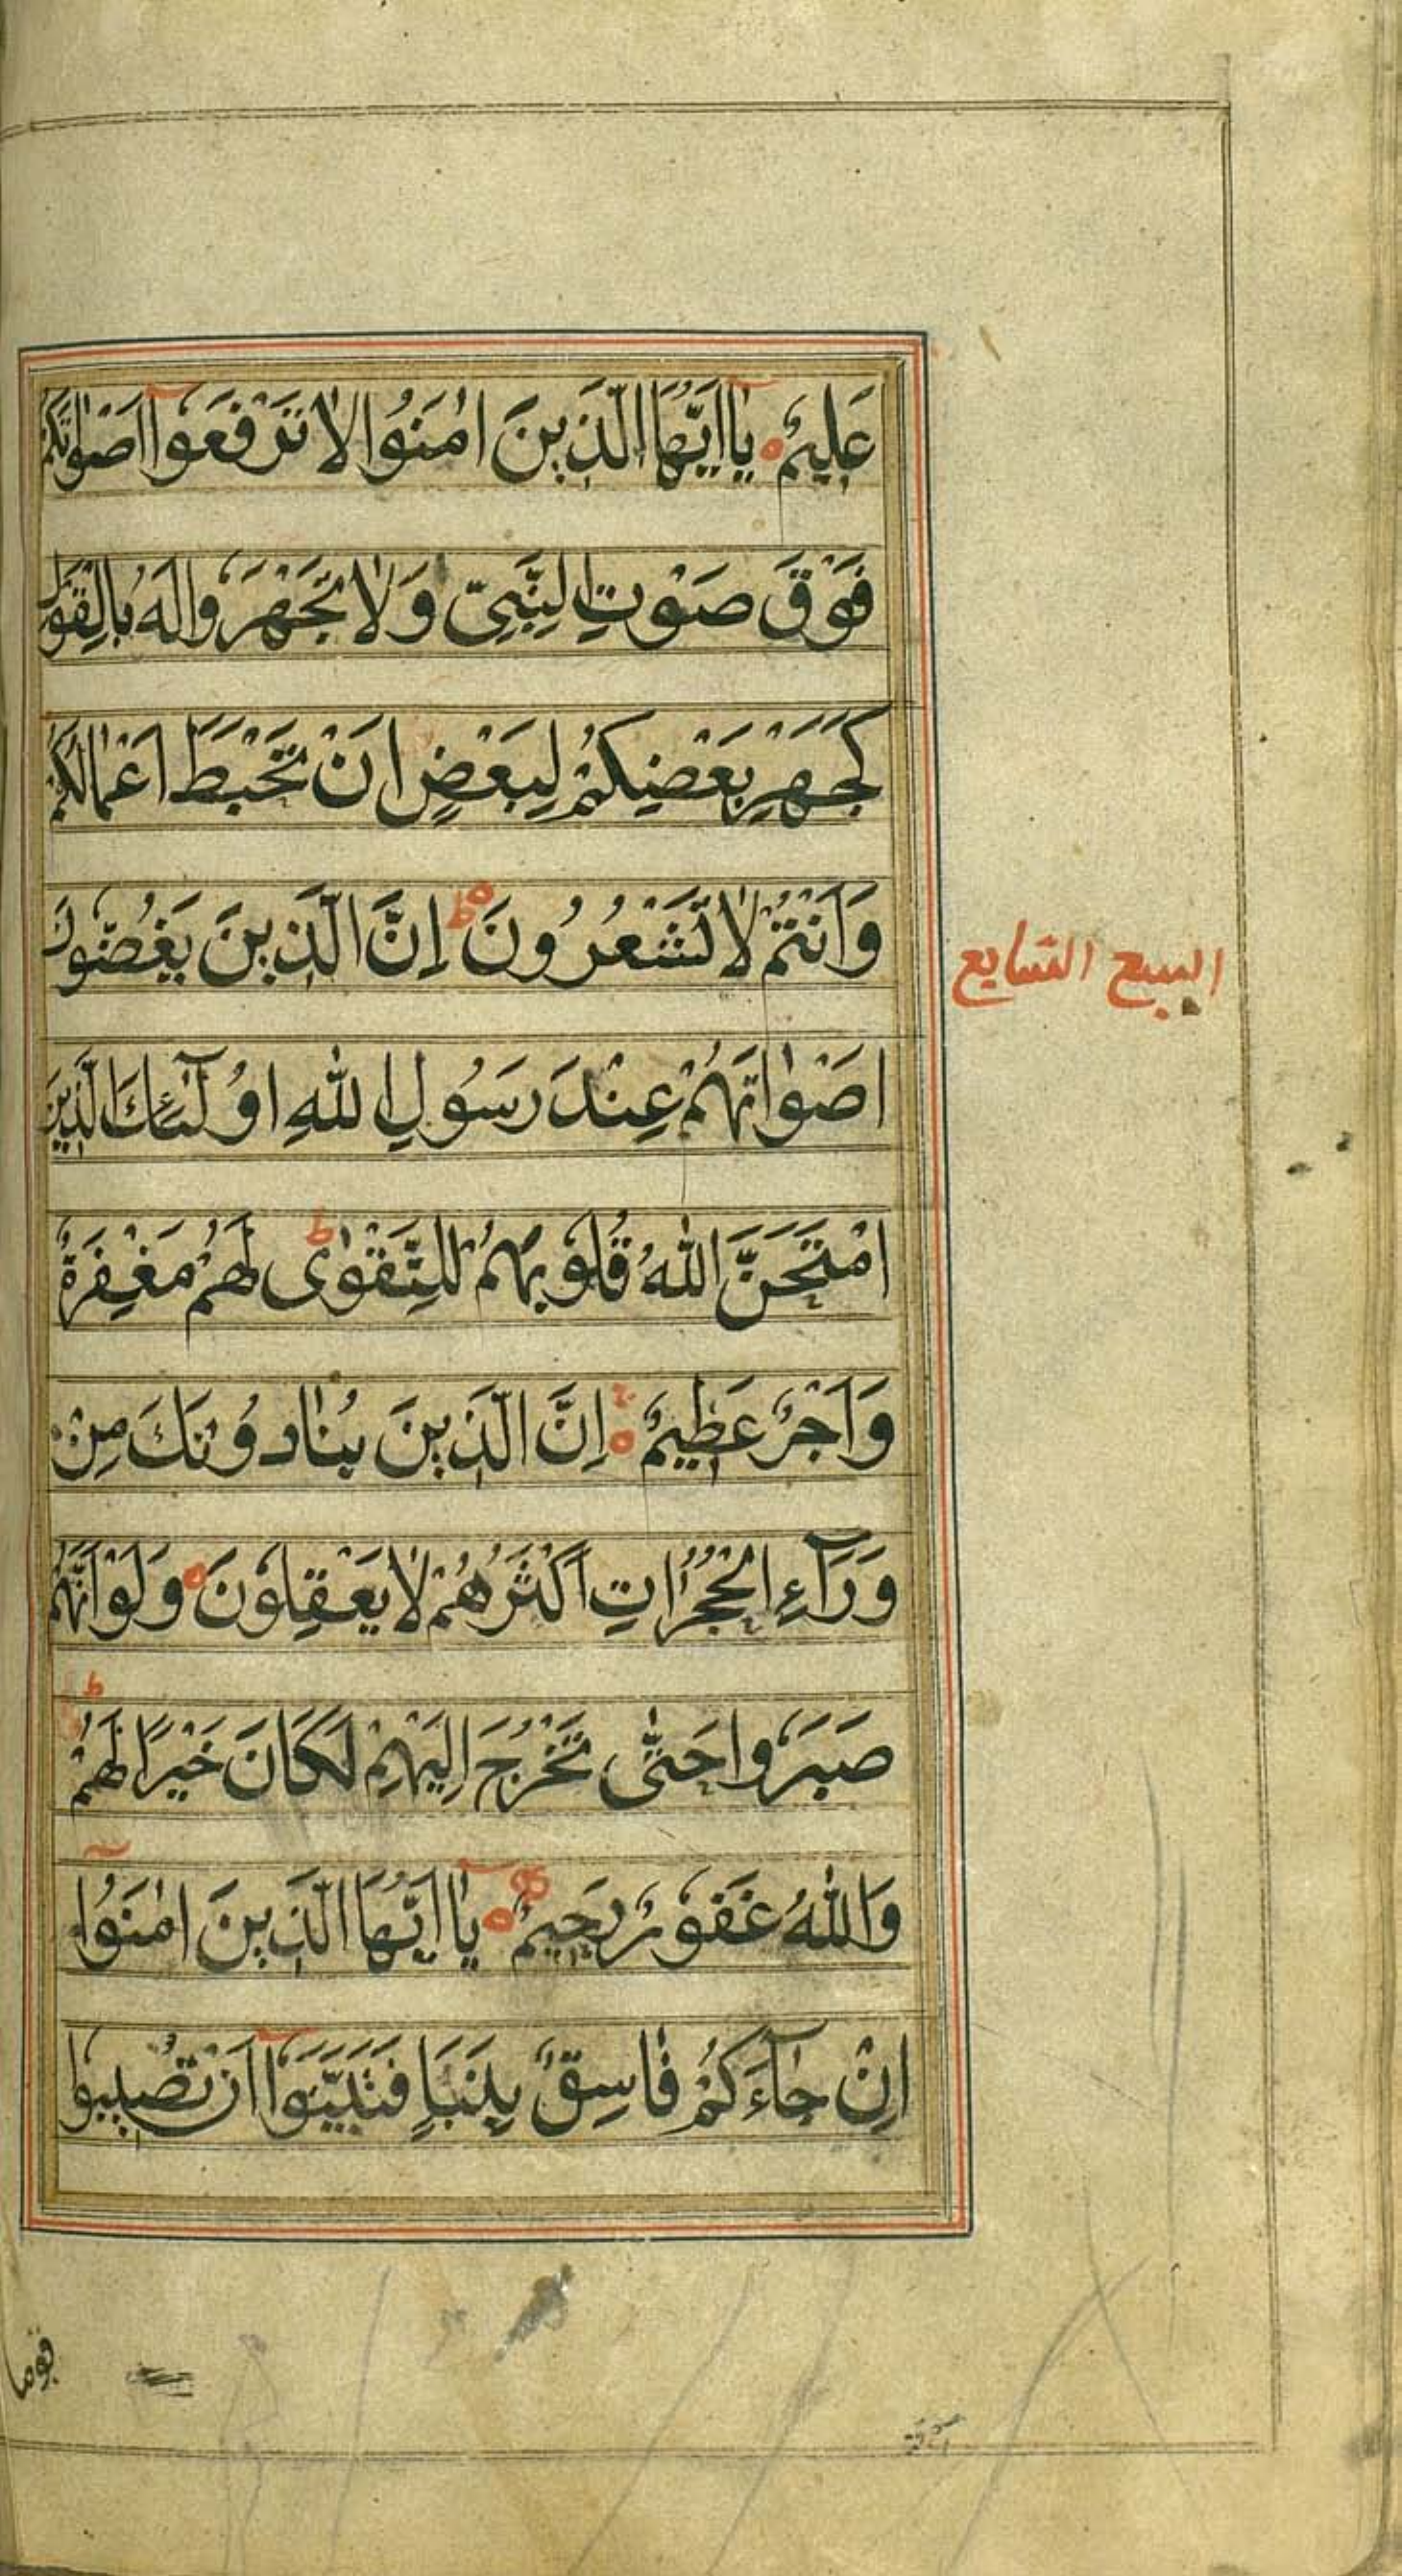 عَلِيمٌ ه يٰٓا اَيُّهَا الَّذِينَ اٰمَنُوا لَا تَرْفَعُوٓا اَصْوٰاتَكُمْ
فَوْقَ صَوْتِ النَّبِيِّ وَلَا تَجْهَرُوا لَهُ بِالْقَوْلِ
كَجَهْرِ بَعْضِكُمْ لِبَعْضٍ اَنْ تَحْبَطَ اَعْمٰالُكُمْ
وَاَنْتُمْ لَا تَشْعُرُونَ ه ط اِنَّ الَّذِينَ يَغُضُّونَ
اَصْوٰاتَهُمْ عِنْدَ رَسُولِ اللّٰهِ اُولٰٓئِكَ الَّذِينَ
امْتَحَنَ اللّٰهُ قُلُوبَهُمْ لِلتَّقْوٰى ط لَهُمْ مَغْفِرَةٌ
وَاَجْرٌ عَظِيمٌ ه اِنَّ الَّذِينَ يُنٰادُونَكَ مِنْ
وَرَآءِ الْحُجُرٰاتِ اَكْثَرُهُمْ لَا يَعْقِلُونَ ه وَلَوْ اَنَّهُمْ
صَبَرُوا حَتّٰى تَخْرُجَ اِلَيْهِمْ لَكَانَ خَيْرًا لَهُمْ ط
وَاللّٰهُ غَفُورٌ رَحِيمٌ ه يٰٓا اَيُّهَا الَّذِينَ اٰمَنُوٓا
اِنْ جٰآءَكُمْ فٰاسِقٌ بِنَبَاٍ فَتَبَيَّنُوٓا اَنْ تُصِيبُوا
السبع السابع
قوما